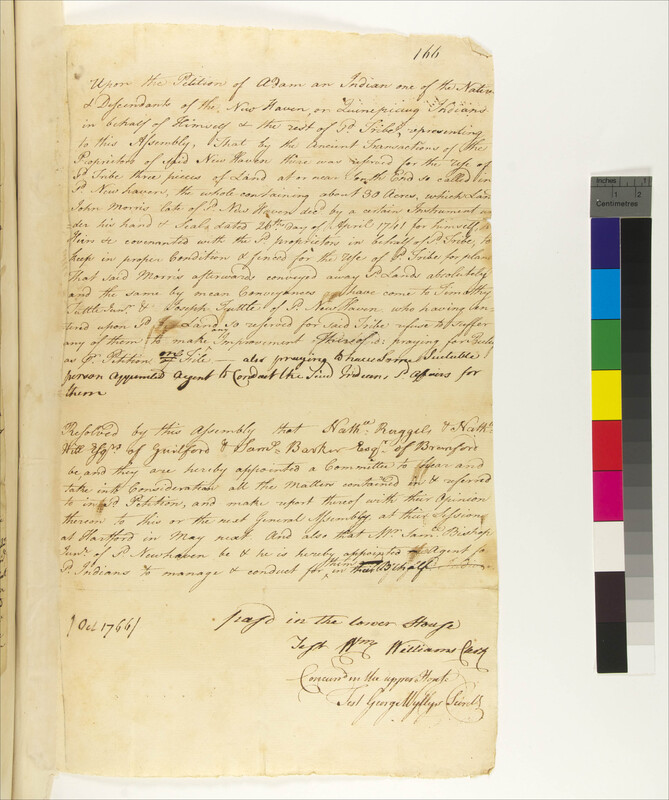 166
Upon the Petition of Adam an Indian one of the Native
& Descendants of the New Haven or Quinepieug Indians
in behalf of Himself & the rest of sd Tribe, representing
to this Assembly, That by the Ancient Transactions of the
Proprietors of said New Haven there was reserved for the Use of
sd Tribe three pieces of Land at or near South End so called in
sd New haven, the whole containing about 30 Acres, which Land
John Morris late of sd New Haven decd by a certain Instrument un
der his hand & Seale, dated 26th day of April 1741 for himself &
Heirs &c covenanted with the sd proprietors in behalf of sd Tribe, to
keep in proper Condition & fenced for the Use of sd Tribe for plan
that said Morris afterwards conveyed away sd Lands absolutely
and the same by mean Conveyances have come to Timothy
Tuttle Junr. & Joseph Tuttle of sd New Haven who having en
tered upon sd Land so reserved for said Tribe refuse to suffer
any of them to make any Improvement thereof: praying for Relief
as pr. Petition on File — also praying to have some Suitable
person appointed Agent to Conduct the said Indians sd Affairs for
them
Resolved by this Assembly that Nathll. Ruggels & Nathll.
Hill Esqrs of Guilford & Samll. Barker Esqr. of Branford
be, and they are hereby appointed a Committee to Hear and
take into Consideration all the Matters contained in & referred
to in sd Petition, and make report thereof with their Opinion
thereon to this or the next General Assembly, at their Session
at Hartford in May next. And also that Mr. Samll Bishop
Junr. of sd Newhaven be & he is hereby appointed Agent for
sd Indians to manage & conduct for them in their Behalf
[Oct 1766] passd in the lower House
Test Wm Williams Clerk
Concurrd in the upper House
Test George Wyllys Secrety
inches 1 2
Centimetres